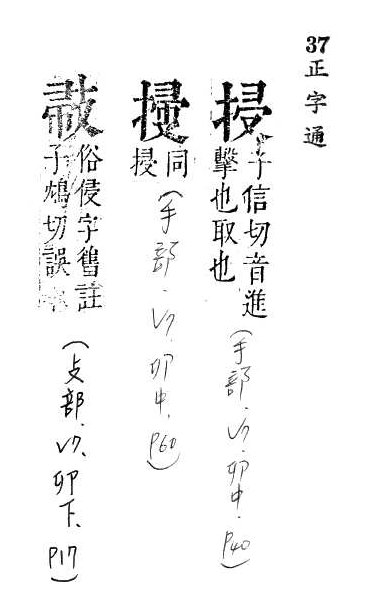 37正字通
子信切音進
擊也取也
(手部、V7、卯中、P40)
同
(手部、V7、卯中、P60)
俗侵字舊註
子鴆切誤
(攴部、V7、卯下、P17)